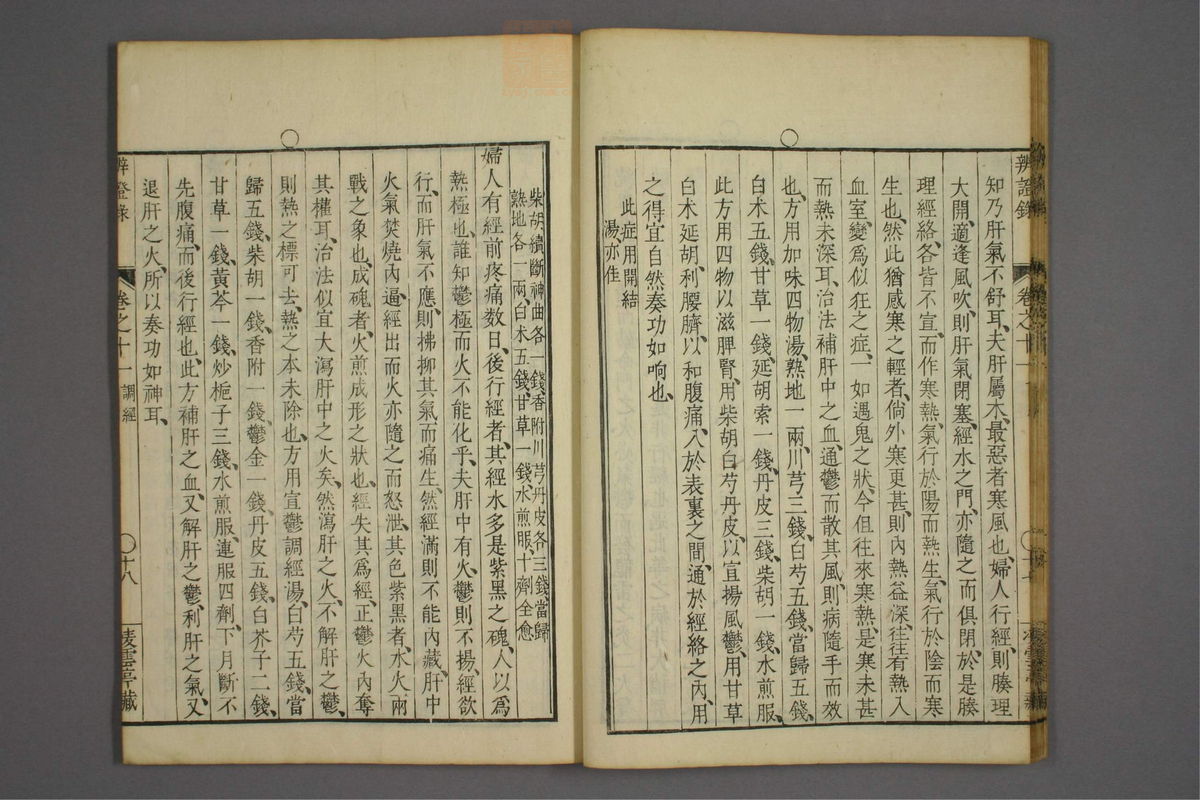 辨證錄 卷之十一
知乃肝氣不舒耳、夫肝屬木、最惡者寒風也、婦人行經、則腠理
大開、適逢風吹、則肝氣閉塞、經水之門、亦隨之而俱閉、於是腠
理經絡、各皆不宣、而作寒熱、氣行於陽而熱生、氣行於陰而寒
生也、然此猶感寒之輕者、倘外寒更甚、則內熱益深、往往有熱入
血室、變爲似狂之症、一如遇鬼之狀、今但往來寒熱、是寒未甚
而熱未深耳、治法補肝中之血、通鬱而散其風、則病隨手而效
也、方用加味四物湯、熟地一兩、川芎三錢、白芍五錢、當歸五錢、
白术五錢、甘草一錢、延胡索一錢、丹皮三錢、柴胡一錢、水煎服、
此方用四物以滋脾腎、用柴胡白芍丹皮、以宣揚風鬱、用甘草
白术延胡、利腰臍、以和腹痛、入於表裏之間、通於經絡之內、用
之得宜自然奏功如响也、
此症用開結
湯、亦佳
柴胡續斷神曲各一錢、香附川芎丹皮各三錢、當歸
熟地各一兩、白术五錢、甘草一錢、水煎服、十劑全愈
婦人有經前疼痛數日、後行經者、其經水多是紫黑之塊、人以爲
熱極也、誰知鬱極而火不能化乎、夫肝中有火、鬱則不揚、經欲
行、而肝氣不應、則拂抑其氣、而痛生、然經滿則不能內藏、肝中
火氣焚燒內逼、經出而火亦隨之而怒泄、其色紫黑者、水火兩
戰之象也、成塊者、火煎成形之狀也、經失其爲經、正鬱火內奪
其權耳、治法似宜大瀉肝中之火矣、然瀉肝之火、不解肝之鬱、
則熱之標可去、熱之本未除也、方用宣鬱調經湯、白芍五錢、當
歸五錢、柴胡一錢、香附一錢、鬱金一錢、丹皮五錢、白芥子二錢、
甘草一錢、黃芩一錢、炒梔子三錢、水煎服、連服四劑、下月斷不
先腹痛、而後行經也、此方補肝之血、又解肝之鬱、利肝之氣、又
退肝之火、所以奏功如神耳、
辨證錄 卷之十一 調經 十八